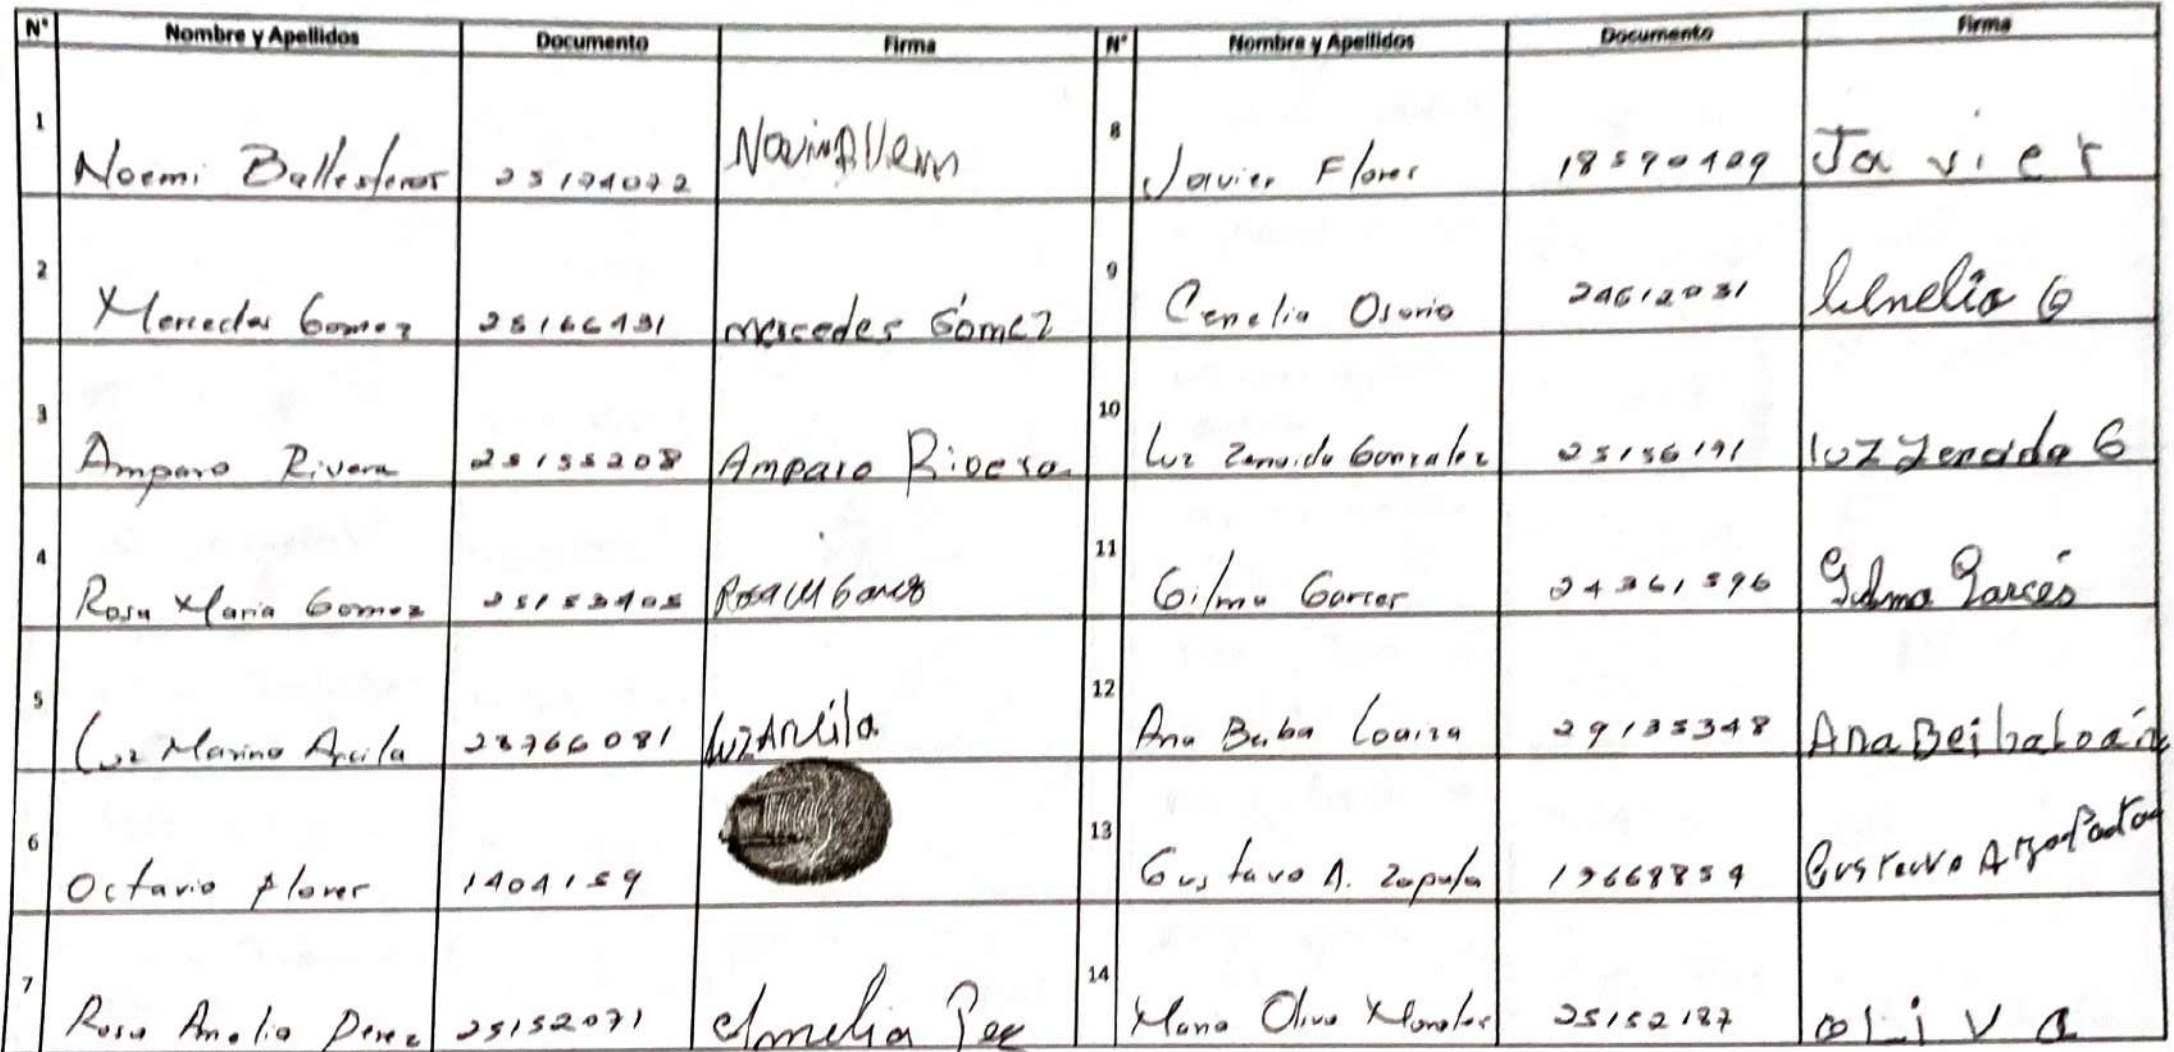 N° Nombre y Apellidos Documento Firma N° Nombre y Apellidos Documento Firma
1 Noemi Ballesteros 25174072 8 Javier Flores 18590409 Javier
2 Mercedes Gomez 25166431 mercedes Gómez 9 Cenelia Osorio 24612031 Cenelia O
3 Amparo Rivera 25155208 Amparo Rivera 10 Luz Zenaida Gonzalez 25156191 luz Zenaida G
4 Rosa Maria Gomez 25153405 Rosa M Gomez 11 Gilma Garces 24361596 Gilma Garcés
5 Luz Marina Arcila 28766081 luz Arcila 12 Ana Beiba Loaiza 29135348 Ana Beiba Loaiza
6 Octavio Flores 1404159 13 Gustavo A. Zapata Gustavo A
7 Rosa Amelia Perez 25152071 Amelia Pez 14 Maria Oliva Morales 25152187 oLiva